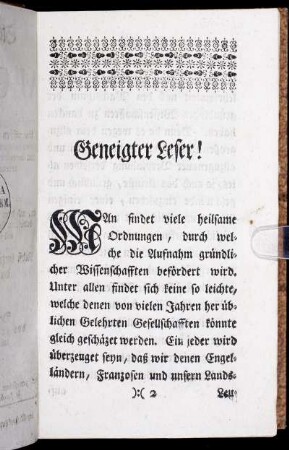 Geneigter Leser!
MAn findet viele heilsame
Ordnungen, durch wel-
che die Aufnahm gründli-
cher Wissenschafften befördert wird.
Unter allen findet sich keine so leichte,
welche denen von vielen Jahren her üb-
lichen Gelehrten Gesellschafften könnte
gleich geschäzet werden. Ein jeder wird
überzeuget seyn, daß wir denen Engel-
ländern, Franzosen und unsern Lands-
):( 2 Leu-